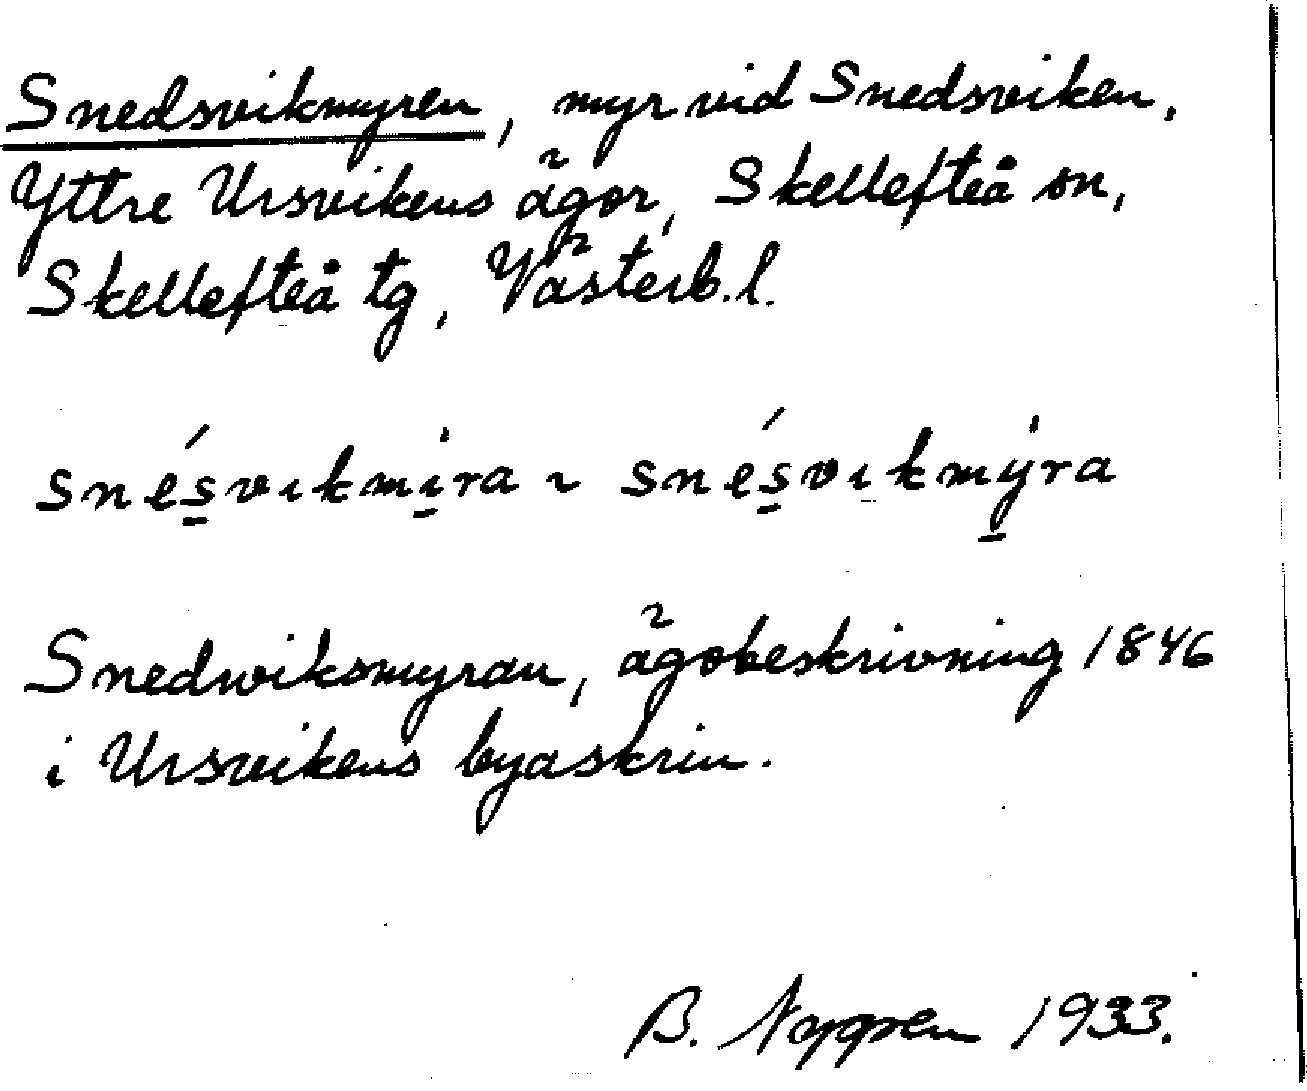 Snedsvikmyren, myr vid Snedsviken,
Yttre Ursvikens ägor, Skellefteå sn,
Skellefteå tg, Västerb. l.
snésvıkmı̣ra ~ snésvıkmẏra
Snedwiksmyran, ägobeskrivning 1846
i Ursvikens byaskrin.
B. 1933.